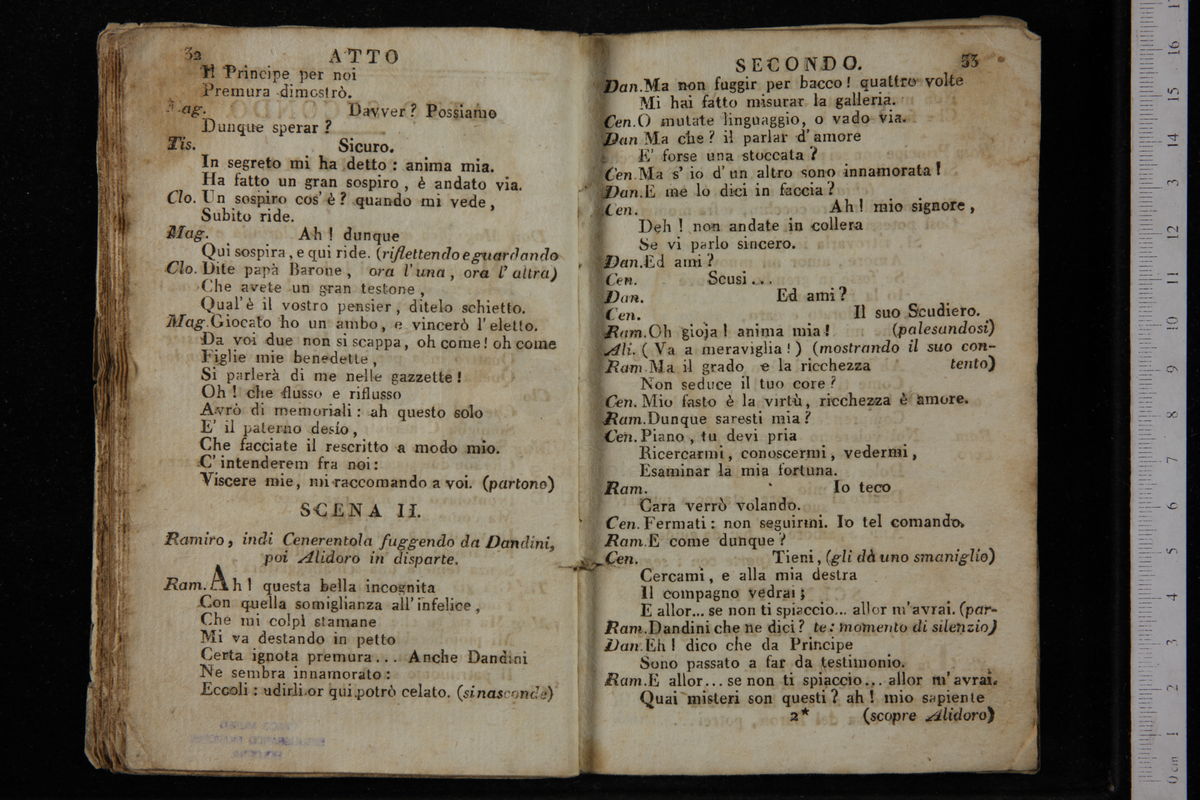 32 ATTO
Il Principe per noi
Premura dimostrò.
Mag. Davver? Possiamo
Dunque sperar?
Tis. Sicuro.
In segreto mi ha detto: anima mia.
Ha fatto un gran sospiro, è andato via.
Clo. Un sospiro cos' è? quando mi vede,
Subito ride.
Mag. Ah! dunque
Qui sospira, e qui ride. (riflettendo e guardando
Clo. Dite papà Barone, ora l'una, ora l'altra)
Che avete un gran testone,
Qual' è il vostro pensier, ditelo schietto.
Mag. Giocato ho un ambo, e vincerò l'eletto.
Da voi due non si scappa, oh come! oh come
Figlie mie benedette,
Si parlerà di me nelle gazzette!
Oh! che flusso e riflusso
Avrò di memoriali: ah questo solo
E' il paterno desío,
Che facciate il rescritto a modo mio.
C' intenderem fra noi:
Viscere mie, mi raccomando a voi. (partono)
SCENA II.
Ramiro, indi Cenerentola fuggendo da Dandini,
poi Alidoro in disparte.
Ram. Ah! questa bella incognita
Con quella somiglianza all' infelice,
Che mi colpì stamane
Mi va destando in petto
Certa ignota premura... Anche Dandini
Ne sembra innamorato:
Eccoli: udirli or qui potrò celato. (si nasconde)
SECONDO. 33
Dan. Ma non fuggir per bacco! quattro volte
Mi hai fatto misurar la galleria.
Cen. O mutate linguaggio, o vado via.
Dan Ma che? il parlar d' amore
E' forse una stoccata?
Cen. Ma s' io d' un altro sono innamorata!
Dan. E me lo dici in faccia?
Cen. Ah! mio signore,
Deh! non andate in collera
Se vi parlo sincero.
Dan. Ed ami?
Cen. Scusi...
Dan. Ed ami?
Cen. Il suo Scudiero.
Ram. Oh gioja! anima mia! (palesandosi)
Ali. (Va a meraviglia!) (mostrando il suo con-
Ram. Ma il grado e la ricchezza tento)
Non seduce il tuo core?
Cen. Mio fasto è la virtù, ricchezza è amore.
Ram. Dunque saresti mia?
Cen. Piano, tu devi pria
Ricercarmi, conoscermi, vedermi,
Esaminar la mia fortuna.
Ram. Io teco
Cara verrò volando.
Cen. Fermati: non seguirmi. Io tel comando.
Ram. E come dunque?
Cen. Tieni, (gli dà uno smaniglio)
Cercami, e alla mia destra
Il compagno vedrai;
E allor... se non ti spiaccio... allor m'avrai. (par-
Ram. Dandini che ne dici? te: momento di silenzio)
Dan. Eh! dico che da Principe
Sono passato a far da testimonio.
Ram. E allor... se non ti spiaccio... allor m'avrai.
Quai misteri son questi? ah! mio sapiente
2* (scopre Alidoro)